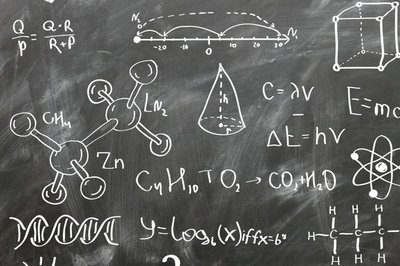 Q/P = Q·R/R+P
N₁
-20 -10 0 10 20 30
CH₄
LN₂
Zn
h
r
C = λV
E=mc
ΔE = hV
C₄H₁₀ + O₂ → CO₂+H₂O
y=Log₆(x)iffx=6ʸ
H H H
H C C C
H H H
?